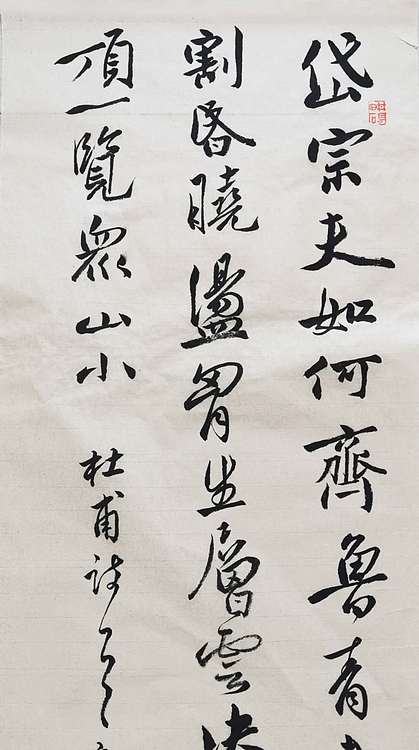 岱宗夫如何齊魯青
割昏曉盪胷生層雲決
頂一覽衆山小
杜甫詩